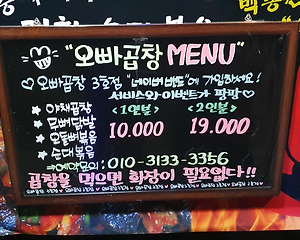 "오빠곱창 MENU"
♡오빠곱창 3호점 "네이버밴드"에 가입하세요!
서비스와 이벤트가 팡팡♡
<1인분> <2인분>
★ 야채곱창
★ 무뼈닭발
★ 오돌뼈볶음
★ 순대볶음
10.000 19.000
010-3133-3356
곱창을 먹으면 화장이 필요없다!!